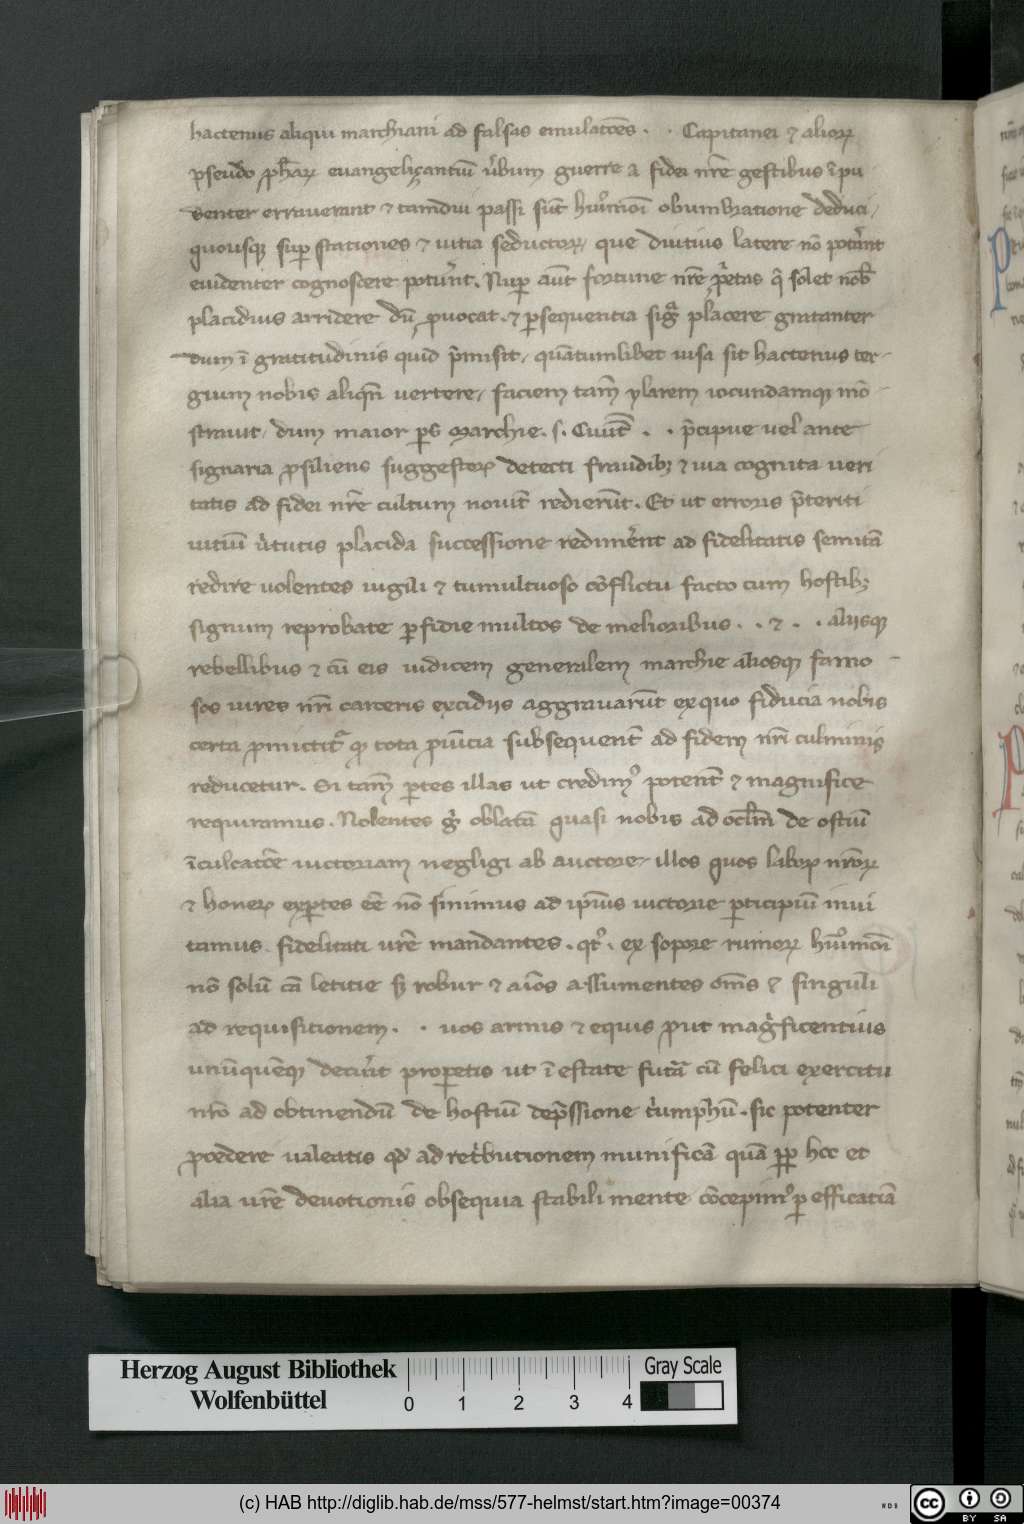 hactenus aliqui marchiani ad falsas emulatōes . . Capitanei ⁊ alioꝝ
pseudo ꝓph̄aꝝ euangeliçantiū v̓bum guerre a fidei nr̄e gestibus īpu
denter errauerant ⁊ tamdiu passi sūt hui᷒mōi obumbratione deduci /
quousqꝫ suꝑ stationes ⁊ uitia seductoꝝ / que diutius latere nō potūnt
euidenter cognoscere potūnt . Nuꝑ aūt fortune nr̄e p̄etas q̄ solet nob̄
placidius arridere dū ꝓuocat . ⁊ ꝑsequentia sig̃ placere gratanter
dum ī gratitudinis quid p̄misit / quātumlibet uisa sit hactenus ter-
gium nobis aliqn̄ uertere / faciem tam̄ ylarem iocundamqꝫ mō-
strauit / dum maior ꝑs Marchie . s . Ciuit̄ . . p̄cipue uel ante
signaria ꝓsiliens suggestoꝝ detecti fraudibꝫ ⁊ uia cognita ueri
tatis ad fidei nr̄e cultum nouit̄ redierūt . Et ut erroris p̄teriti
uitiū v̓tutis placida successione redim̄ent ad fidelitatis semitā
redire uolentes uigili ⁊ tumultuoso cōflictu facto cum hostibꝫ
signum reprobate ꝑfidie multos de melioribus . . ⁊ . . aliisqꝫ
rebellibus ⁊ cū eis iudicem generalem marchie aliosqꝫ famo-
sos uires nr̄i carceris excidiis aggrauarūt ex quo fiducia nobis
certa ꝓmictit̉ qꝫ tota ꝓuīcia subsequent̄ ad fidem nr̄i culminis
reducetur . Si tam̄ ꝑtes illas ut credim᷒ potent̄ ⁊ magnifice
requiramus . Nolentes g̊ oblatā quasi nobis ad ocl̄m de ostiū
īculcatōe uictoriam negligi ab auctore / illos quos laboꝝ nr̄oꝝ
⁊ honeꝝ exꝑtes eē nō sinimus ad ip̄ius uictorie ꝑticipiū inui
tamus . fidelitati ur̄e mandantes . qt᷒ . ex sopore rumoꝝ hui᷒mōi
nō solū cā letitie sꝫ robur ⁊ aīos assumentes om̄s ⁊ singuli
ad requisitionem . . uos armis ⁊ equis ꝓut mag̓ficentius
unūquēqꝫ decu̓it proꝑetis ut ī estate futā cū felici exercitu
nr̄o ad obtinendū de hostiū dep̄ssione t̓umphū . sic potenter
ꝓcedere ualeatis qđ ad ret̓butionem munificā quā ꝓꝑ hec et
alia ur̄e deuotionis obsequia stabili mente cōcepim᷒ ꝑ efficatiā
Herzog August Bibliothek
Wolfenbüttel
0 1 2 3 4
Gray Scale
(c) HAB http://diglib.hab.de/mss/577-helmst/start.htm?image=00374
WDB
cc
BY SA